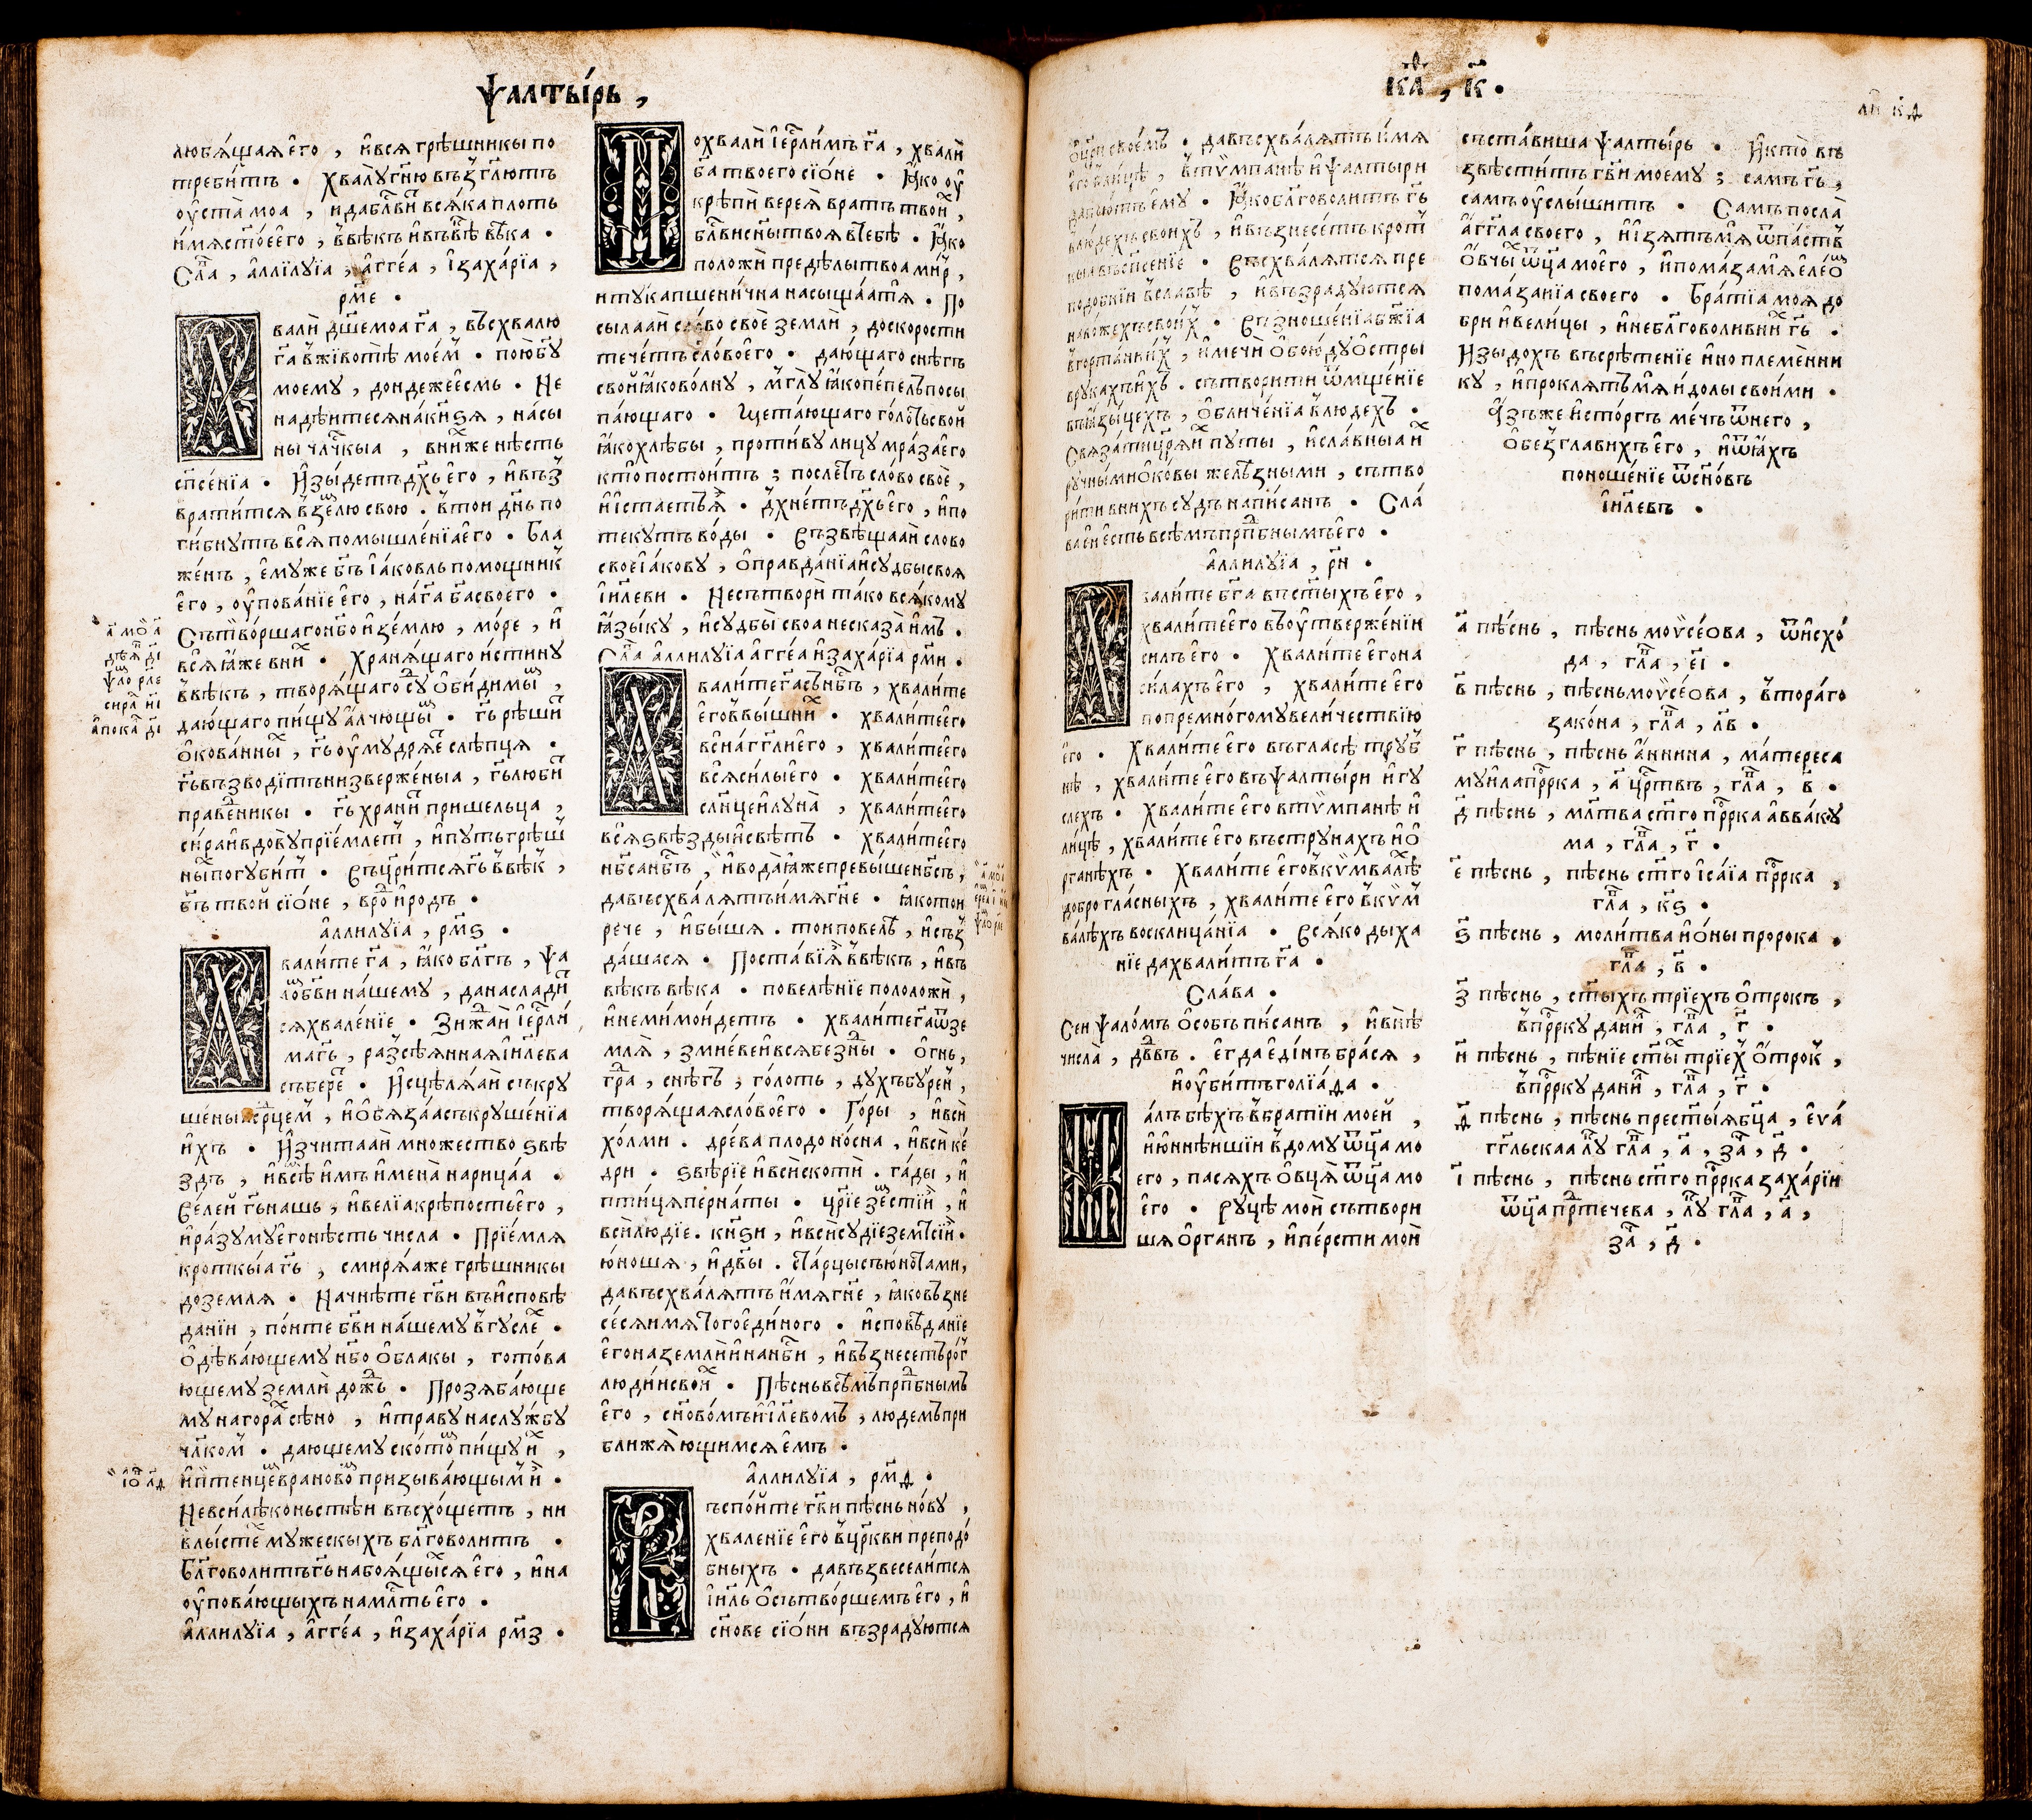 Ѱалты́рь ,
любѧ́щаѧ є҆го̀ , и҆ всѧ грѣ́шникы по
треби́тъ . Хвалꙋ̀ гн҃ю въ з̾гл҃ютъ
ѹ҆ста̀ моа , и҆ да бл҃ви́ всѧ́ка плоть
и҆́мѧ ст҃о́е є҆го̀ , в̾вѣ́къ и҆ въ вѣ́ ве́ка .
Сла , а҆ллилꙋ́їа , а҆гге́а , і҆заха́рїа ,
рм҃е .
валѝ дш҃е моа гⷭ҇а , въсхвалю
гⷭ҇а в̾ жи́вотѣ мое́м̾ . пою̀ бг҃ꙋ
моемꙋ , дондеже є҆́смь . Не
надѣ́итесѧ на́ кн҃ѕѧ , на сы
ны чл҃чкыа , в ни́х же нѣ́сть
сп҃се́нїа . И҆зы́детъ дх҃ъ є҆го̀ , и҆ въз̾
врати́тсѧ в̾ зе́млю свою . в̾ то́и дн҃ь по
ги́бнꙋтъ всѧ̀ помышле́нїа є҆го̀ . Бла
же́нъ , є҆мꙋже бг҃ъ і҆а́ковль помощник̾
є҆го̀ , ѹ҆пова́нїе є҆го̀ , на́ гⷭ҇а бг҃а своего .
Сътво́ршаго нб҃о и҆ зе́млю , мо́ре , и҆
всѧ̀ ꙗ҆́же в ни́х . Хранѧ́щаго и҆́стинꙋ
в̾вѣ́къ , творѧ́щаго сꙋⷣ ѻ҆би́димыⷨ ,
даю́щаго пи́щꙋ а҆́лчющыⷨ . гⷭ҇ь рѣши́ⷮ
ѻ҆кова́нныⷯ , гⷭ҇ь ѹ҆мꙋдрѧ́еⷮ слѣпцѧ .
гⷭ҇ь въз̾води́тъ низверже́ныа , гⷭ҇ь люби́ⷮ
праве́никы . гⷭ҇ь храни́ⷮ пришельца ,
си́ра и҆ вдовꙋ̀ прїе́млетⷮ , и҆ пꙋть грѣ́ш̾
ныⷯ погꙋби́тⷮ . Съцр҃и́тсѧ гⷭ҇ь в̾вѣк̾ ,
бг҃ъ тво́й сїѡ́не , в роⷣ и҆ родъ .
а҆ллилꙋ́їа , рм҃ѕ .
вали́те гⷭ҇а , ꙗ҆́ко бл҃гъ , ѱа
лоⷨ бг҃ви на́шемꙋ , да наслади́ⷮ
сѧ хвале́нїе . Зижаⷣи і҆ерⷭ҇ли́
маⷭ гⷭ҇ь , раз̾сѣ́ѧннаѧ і҆и҃лева
събере́ⷮ . И҆сцѣлѧ́аи съкрꙋ
ше́ны срⷣцем̾ , и҆ ѻ҆бѧза́а съкрꙋше́нїа
и҆́хъ . И҆зчитааи мно́жество ѕвѣ
здъ , и҆ всѣⷨ и҆́мъ и҆мена̀ нарица́а .
Велей гⷭ҇ь нашь , и҆ ве́лїа крѣ́пость є҆го̀ ,
и҆ ра́зꙋмꙋ є҆го нѣ́сть числа . Прїе́млѧ
кроткы́а гⷭ҇ь , смирѧ́а же грѣ́шникы
до земля . Начнѣ́те гв҃и въ и҆споѣ
да́нїи , по́ите бг҃ви на́шемꙋ в̾ гꙋ́слеⷯ .
Ѻ҆дѣва́ющемꙋ нб҃о ѻ҆́блакы , гото́ва
ющемꙋ землѝ дожⷣъ . Прозѧба́юще
мꙋ на гораⷯ сѣ́но , и҆ травꙋ на слꙋ́жбꙋ
чл҃ком̾ . даю́щемꙋ ско́томⷨ пи́щꙋ и҆́х ,
и҆ птенце́мⷨ врано́воⷨ призыва́ющым̾ и҆̀ .
Не в си́лѣ ко́ньстѣи въсхо́щетъ , ни
в лы́стѣⷯ мꙋжескыхъ бл҃говоли́тъ .
Бл҃говоли́тъ гⷭ҇ь на боѧ́щыⷯсѧ є҆го̀ , и҆ на
ѹ҆пова́ющыхъ на млⷭ҇ть є҆го̀ .
А҆ллилꙋ́їа , а҆гге́а , и҆ заха́рїа рм҃з .
охвалѝ і҆ерⷭ҇ли́мъ гⷭ҇а , хвалѝ
бг҃а твоего сїѡ́не . Ꙗ҆́ко ѹ҆
крѣпѝ вереѧ̀ вратъ твои́х ,
бл҃ви сн҃ы твоѧ в тебѣ̀ . Ꙗ҆́ко
положѝ предѣлы твоа ми́р̾ ,
и тꙋ́ка пшени́чна насыща́аⷮ тѧ̀ . По
сыла́аи сло́во своѐ землѝ , до скорости
тече́тъ сло́во є҆го̀ . даю́щаго снѣ́гъ
свой ꙗ҆́ко во́лнꙋ , мглꙋ̀ ꙗ҆́ко пе́пелъ посы
па́ющаго . щета́ющаго го́лоть свой
ꙗ҆́ко хлѣ́бы , проти́вꙋ лицꙋ мра́за є҆го̀
кто̀ постои́тъ ; послеⷮ сло́во своѐ ,
и҆ истаетъ ѧ҆̀ . дх҃нетъ дх҃ъ є҆го̀ , и҆ по
текꙋ́тъ во́ды . Съзвѣща́аи слово
свое і҆а́ковꙋ , ѻ҆правда́нїа и҆ сꙋдбы̀ своѧ
і҆и҃леви . Не сътворѝ та́ко всѧ́комꙋ
ꙗ҆зы́кꙋ , и҆ сꙋдбы̀ своа не сказа̀ и҆́мъ .
Сла а҆ллилꙋ́їа а҆гге́а и҆ заха́рїа рм҃и .
вали́те гⷭ҇а съ нб҃съ , хвали́те
є҆го̀ в̾ вы́шниⷯ . хвали́те є҆го̀
вси́ а҆́гг҃ли є҆го̀ , хвали́те є҆го̀
всѧ̀ си́лы є҆го̀ . хвали́те є҆го̀
сл҃нце и҆ лꙋна̀ , хвали́те є҆го̀
всѧ̀ ѕвѣ́зды и҆ свѣ́тъ . хвали́те є҆го̀
нб҃са нб҃съ , и҆ вода̀ ꙗ҆́же превы́ше нб҃съ ,
да въсхва́лѧтъ и҆́мѧ гн҃е . ꙗ҆́ко то́и
рече , и҆ бы́шѧ . то́и повелѣ̀ , и҆ съз̾
да́шасѧ . Поста́ви ѧ҆̀ в̾вѣ́къ , и҆ въ
вѣ́къ вѣ́ка . повелѣ́нїе положѝ ,
и҆ не ми́мои́детъ . хвали́те гⷭ҇а ѿ зе
млѧ̀ , змиеве и҆ всѧ бе́зны . ѻ҆гнь ,
граⷣ , снѣ́гъ , го́лоть , дꙋ́хъ бꙋрен ,
творѧ́щаѧ сло́во є҆го̀ . Го́ры , и҆ вси́
хо́лми . дре́ва плодоно́сна , и҆ вси́ ке́
дри . ѕвѣ́рїе и҆ вси́ ско́ти . га́ды , и҆
пти́цѧ перна́ты . цр҃їе зе́мстїи , и҆
вси́ лю́дїе . кн҃ѕи , и҆ вси́ сꙋдїе земⷭтїи .
ю҆́ношѧ , и҆ дв҃ы . ста́рцы съ ю҆нотами ,
да въсхва́лѧтъ и҆́мѧ гн҃е , ꙗ҆́ко възне
се́сѧ и҆́мѧ того̀ є҆ди́ного . и҆сповѣ́данїе
є҆го на землѝ и҆ на нб҃си , и҆ възнесетъ ро́г̾
люді́и свои́х . Пѣ́снь всѣ́мъ прпⷣбнымъ
є҆го̀ , сн҃ово́мъ і҆и҃левомъ , лю́демъ при
ближа́ющимсѧ є҆мꙋ̀ .
а҆ллилꙋ́їа , рм҃ѳ .
ъспо́йте гв҃и пѣ́снь но́вꙋ ,
хвале́нїе є҆го̀ в̾ цр҃кви препод́о
бныхъ . да възвесели́тсѧ
і҆и҃ль ѻ҆ сътво́ршемъ є҆го̀ , и҆
сн҃ове сїѡ́ни възра́дꙋютсѧ
каⷴ , к҃ .
ѻ҆ цр҃и свое́мъ . да въсхва́лѧтъ и҆́мѧ
є҆го̀ в̾ ли́цѣ , в̾ тѷмпа́нѣ и҆ ѱалтыри
да пою́тъ є҆мꙋ̀ . Ꙗ҆́ко бл҃говоли́тъ гⷭ҇ь
в лю́дехъ свои́хъ , и҆ възнесе́тъ кроⷮ
кыа въ сп҃се́нїе . Въсхва́лѧтсѧ пре
подо́бнїи в̾ сла́вѣ , и҆ възра́дꙋютсѧ
на ло́жехъ свои́х . Възноше́нїа бж҃їа
в̾ горта́ни и҆́х , и҆ мечѝ ѻ҆бою́дꙋ ѻ҆стры
в рꙋка́хъ и҆́хъ . сътвори́ти ѿмще́нїе
въ ꙗ҆зы́цехъ , ѻ҆бличе́нїа в̾ лю́дехъ .
Свѧза́ти цр҃ѧ̀ и҆́х пꙋ́ты , и҆ сла́вныа и҆́х
рꙋчны́ми ѻ҆ко́вы желѣ́зными , сътво
ри́ти в ни́хъ сꙋдъ напи́санъ . Сла́
ва си́ есть всѣ́мъ прпⷣбнымъ є҆го̀ .
а҆ллилꙋ́їа , рн҃ .
вали́те бг҃а въ ст҃ы́хъ є҆го̀ ,
хвали́те є҆го̀ въ ѹ҆тверже́нїи
си́лъ є҆го̀ . Хвали́те є҆го на
си́лахъ є҆го̀ , хвали́те є҆го̀
по премно́гомꙋ вели́чествїю
є҆го̀ . Хвали́те є҆го̀ въ гла́сѣ трꙋб̾
нѣ , хвали́те є҆го̀ въ ѱалты́ри и҆ гꙋ
слехъ . Хвали́те є҆го̀ в тѷмпа́нѣ и҆
ли́цѣ , хвали́те є҆го̀ въ стрꙋнахъ и҆ ѻ҆
рга́нѣхъ . Хвали́те є҆го̀ в̾ кѷмва́лѣⷯ
добро гла́сныхъ , хвали́те є҆го̀ в̾ кѷм̾
ва́лѣхъ восклица́нїа . Всѧ́ко дыха
нїе да хвали́тъ гⷭ҇а .
Сла́ва .
Сеи ѱало́мъ ѻ҆со́бъ пи́санъ , и҆ внѣ̀
числа̀ , дв҃двъ . є҆гда є҆ди́нъ бра́сѧ ,
и҆ ѹ҆би́тъ голїа́да .
а́лъ бѣ́хъ в̾ бра́тїи моей ,
и҆ ю҆́ннѣишїи в̾ домꙋ ѿца̀ мо
его , пасѧ́хъ ѻ҆́вцѧ ѿца̀ мо
є҆го̀ . Рꙋ́цѣ моѝ сътвори
шѧ ѻ҆рга́нъ , и҆ пе́рсти моѝ
съста́виша ѱалты́рь . И҆ кто̀ въ
звѣсти́тъ гв҃и моемꙋ ; са́мъ гⷭ҇ь ,
са́мъ ѹ҆слы́шитъ . Са́мъ посла̀
а҆́гг҃ла своего , и҆ ізѧ́тъ мѧ̀ ѿ па́ств̾
ѻ҆́вчыⷯ ѿца̀ моего , и҆ пома́за мѧ̀ є҆ле́ѡⷨ
пома́занїа своего . Бра́тїа моѧ до
бри и҆ вели́цы , и҆ не бл҃говоли в ни́х гⷭ҇ь .
И҆зыдо́хъ въ срѣ́тенїе и҆ноплеме́нни
кꙋ , и҆ проклѧ́тъ мѧ̀ и҆́долы свои́ми .
А҆́зъ же и҆сто́ргъ ме́чъ ѿ него ,
ѻ҆безглавихъ є҆го̀ , и҆ ѿꙗ҆́хъ
поноше́нїе ѿ сн҃о́въ
і҆и҃левъ .
а҃ пѣ́снь , пѣ́снь моѷсе́ова , ѿ и҆схо́
да , глⷡ҇а , є҃і .
в҃ пѣ́снь , пѣ́снь моѷсе́ова , в̾тора́го
зако́на , глⷡ҇а , л҃в .
г҃ пѣ́снь , пѣ́снь а҆́ннина , ма́тере са
мꙋила прⷪ҇рка , а҃ црⷭ҇твъ , глⷡ҇а , в҃ .
д҃ пѣ́снь , мл҃тва ст҃го прⷪ҇рка а҆вва́кꙋ
ма , глⷡ҇а , г҃ .
є҃ пѣ́снь , пѣ́снь ст҃го і҆са́їа прⷪ҇рка ,
глⷡ҇а , к҃ѕ .
ѕ҃ пѣ́снь , моли́тва и҆ѡ́ны пророка ,
глⷡ҇а , в҃ .
з҃ пѣ́снь , ст҃ы́хъ трїе́хъ ѻ҆́трокъ ,
в̾ прⷪ҇ркꙋ дани́лⷧ , глⷡ҇а , г҃ .
и҃ пѣ́снь , пѣ́нїе ст҃ы́х трїе́х ѻ҆́трок̾ ,
в̾ прⷪ҇ркꙋ дани́лⷧ , глⷡ҇а , г҃ .
ѳ҃ пѣ́снь , пѣ́снь прест҃ы́ѧ бц҃а , є҆ѵа́
гг҃льскаа лꙋⷦ глⷡ҇а , а҃ , заⷱ , д҃ .
і҃ пѣ́снь , пѣ́снь ст҃го прⷪ҇рка заха́рїи
ѿца̀ прⷣтечева , лꙋⷦ глⷡ҇а , а҃ ,
заⷱ , д҃ .